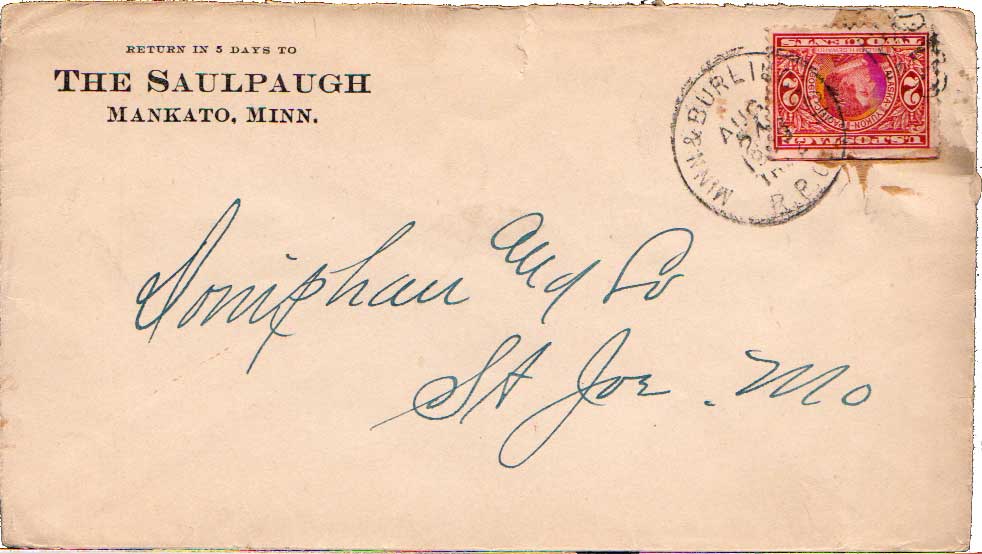 RETURN IN 5 DAYS TO
THE SAULPAUGH
MANKATO, MINN.
MINN & BURLI
AUG
R.P.O
U.S. POSTAGE
2 2
ALASKA-YUKON-PACIFIC
TWO CENTS
Doniphan and Co
St Joe. Mo